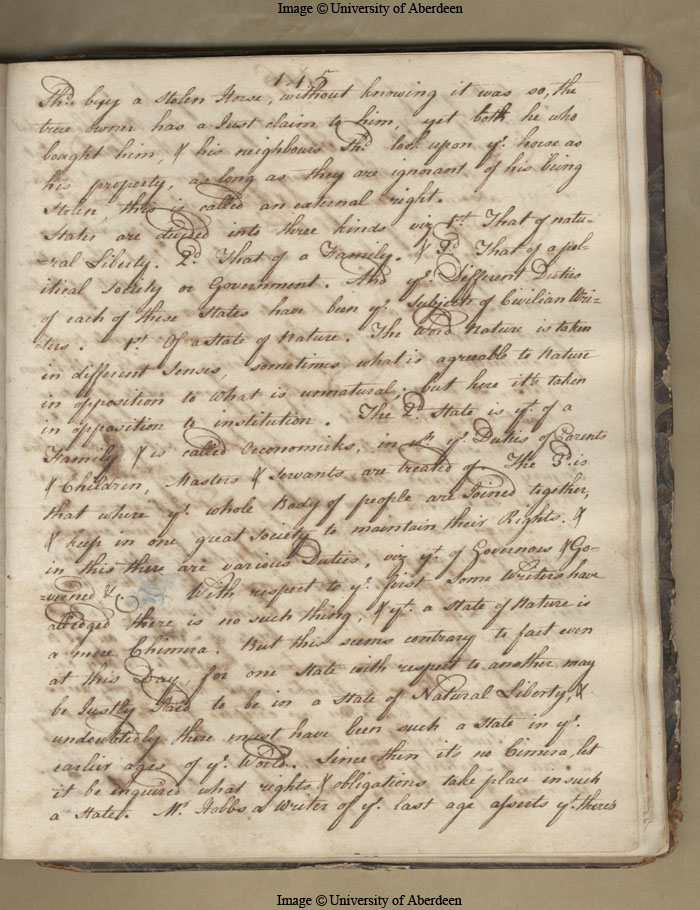 Image © University of Aberdeen
115
Shd buy a stolen Horse, without knowing it was so, the
true owner has a Just claim to him, yet both he who
bought him, & his neighbours Shd look upon ye horse as
his property, as long as they are ignorant of his being
Stolen, this is called an external right.
States are divided into three kinds viz 1st That of natu-
-ral Liberty. 2d That of a Family. & 3d That of a pol-
itical Society or Government. And ye Different Duties
of each of these States have been ye Subject of Civilian Wri-
ters. 1st Of a State of Nature. The Word Nature is taken
in different Senses, sometimes what is agreeable to Nature
in opposition to what is unnatural; but here its taken
in opposition to institution. The 2d State is yt of a
Family & is called Oeconomiks, in wh ye Duties of Parents
& Children, Masters & Servants are treated of. The 3d is
that where ye whole Body of people are Joined together,
& keep in one great Society to maintain their Rights. &
in this there are various Duties, viz yt of Governors & Go-
-verned &c. With respect to ye first Some Writers have
alledged there is no such thing, & yt a State of Nature is
a mere Chimera. But this seems contrary to fact even
at this Day, for one State with respect to another may
be Justly Said to be in a State of Natural Liberty, &
undoubtedly there must have been such a State in ye
earlier ages of ye World. Since then it's no Cimera, let
it be inquired what rights & obligations take place in such
a State. Mr Hobbs a Writer of ye last age asserts yt there's
Image © University of Aberdeen